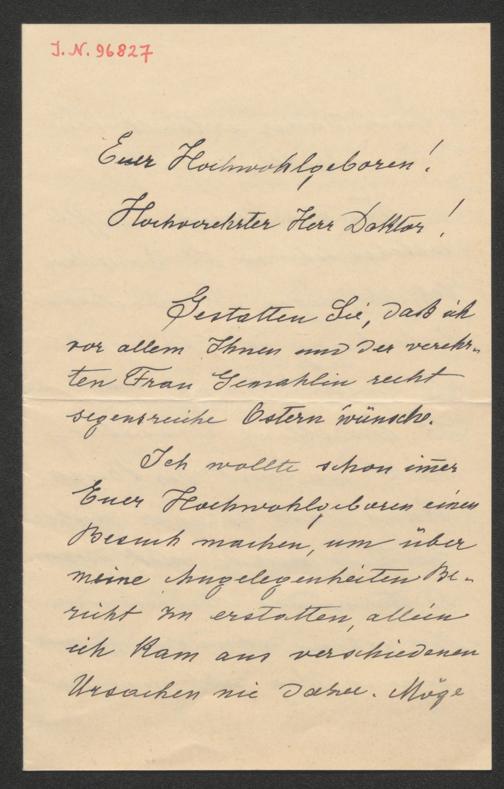 I.N. 96827
Euer Hochwohlgeboren!
Hochverehrter Herr Doktor!
Gestatten Sie, daß ich
vor allem Ihnen und der verehr-
ten Frau Gemahlin recht
segensreiche Ostern wünsche.
Ich wollte schon im̄er
Euer Hochwohlgeboren einen
Besuch machen, um über
meine Angelegenheiten Be-
richt zu erstatten, allein
ich kam aus verschiedenen
Ursachen nie dazu. Möge